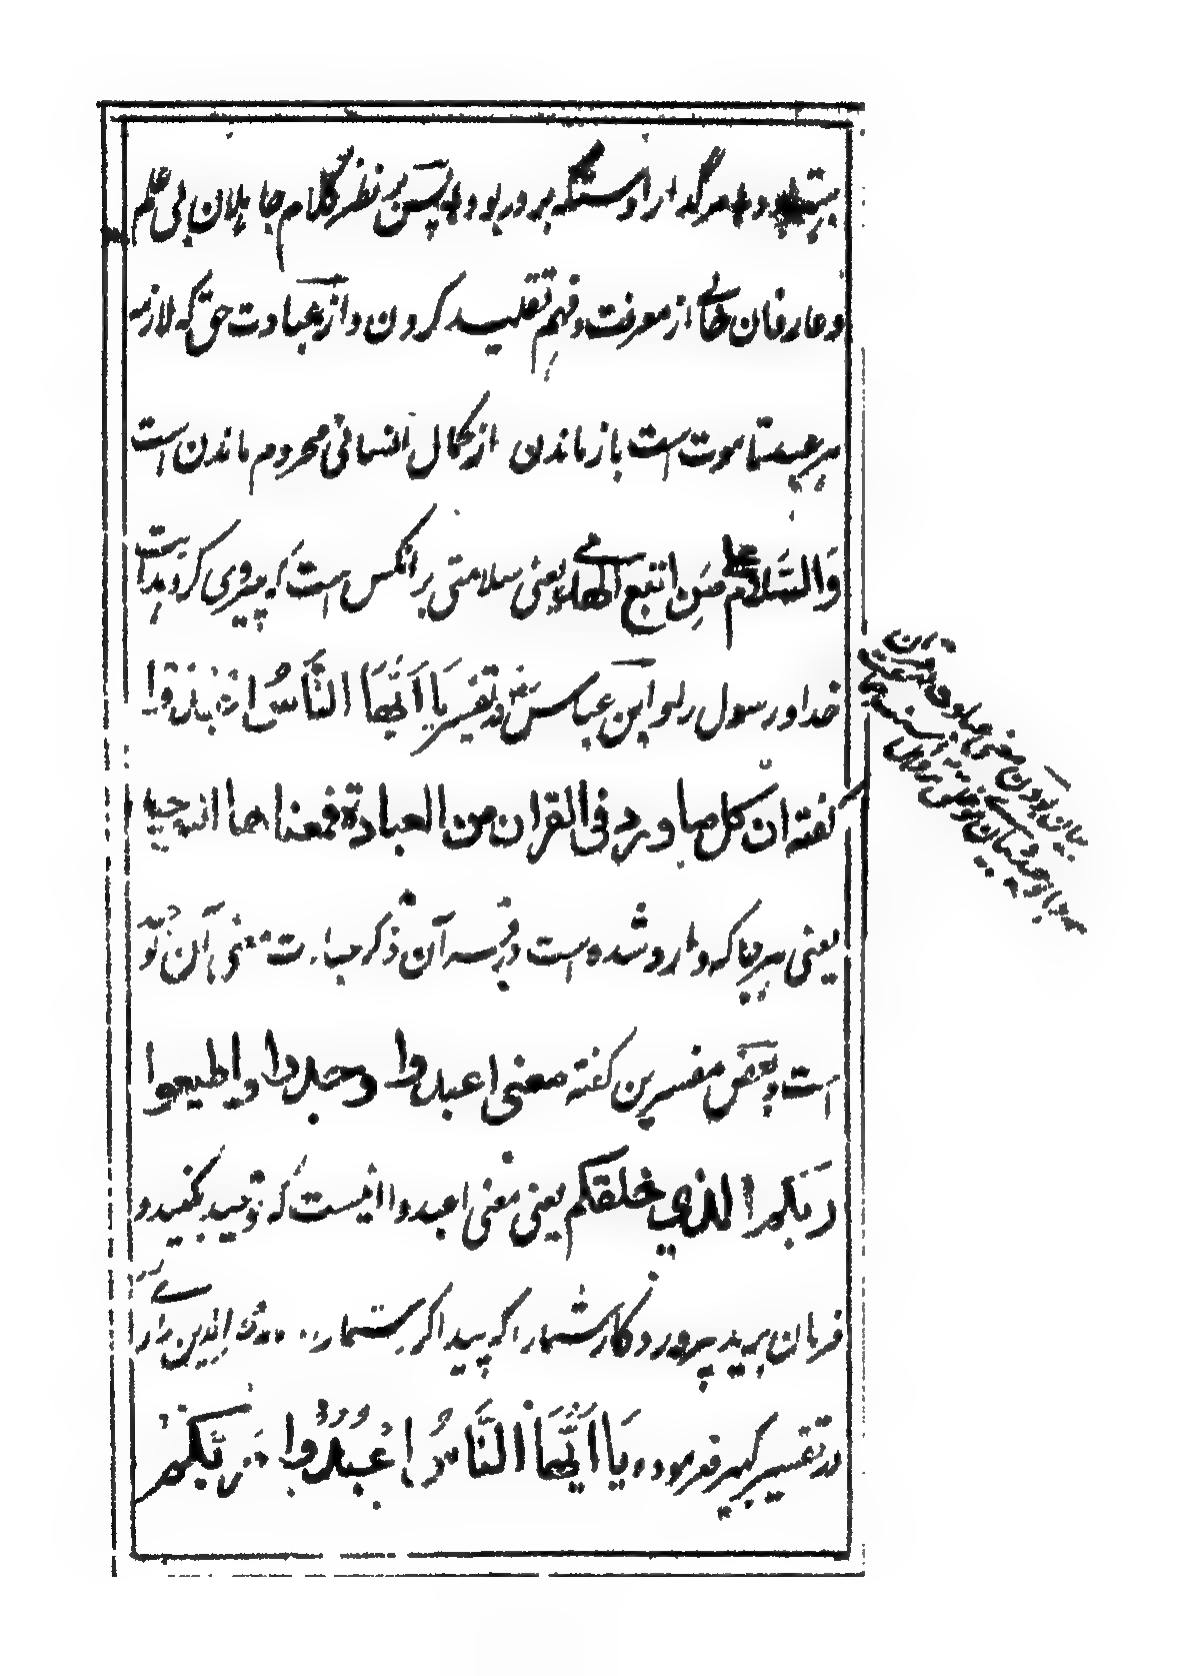 بود و هر گدا را دستگه بر در بود پس بر نظر کلام جاهلان بی علم
و عارفان خالی از معرفت و فهم تقلید کردن و از عبادت حق که لازمه
هر عبد تا موت است باز ماندن از کمال انسانی محروم ماندن است
وَالسَّلَامُ عَلَی مَنِ اتبع الهدی یعنی سلامتی بر انکس است که پیروی کرد بهدایت
خدا و رسول را و ابن عباس در تفسیر یَا اَیُّهَا النَّاسُ اعْبُدُوا
گفته ان کل ما ورد فی القران من العبادة فمعناها التوحید
یعنی هر جا که وارد شده است در قرآن ذکر عبادت معنی آن توحید
است و بعض مفسرین گفته معنی اعبدوا وحدوا و اطیعوا
ربکم الذی خلقکم یعنی معنی اعبدوا اینست که توحید بکنید و
فرمان برید پروردکار شما را که پیدا کرده است شمار امام الدین رازی
در تفسیر کبیر فرموده یَا اَیُّهَا النَّاسُ اعْبُدُوا رَبَّکُمْ
بیان بودن معنی عبادت قرآن